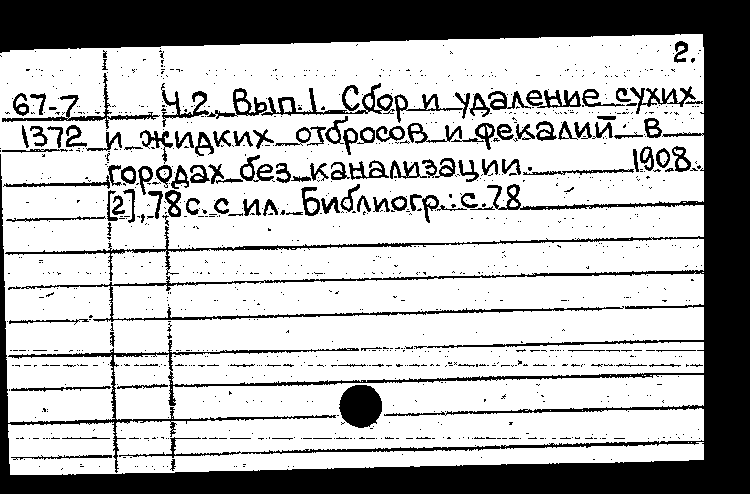 2.
67-7 Ч.2. Вып.1. Сбор и удаление сухих
1372 и жидких отбросов и фекалий в
городах без канализации. 1908.
[2], 78 с. с ил. Библиогр.: с.78